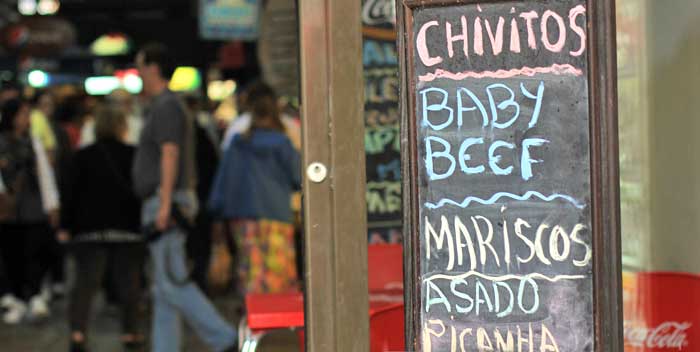 CHIVITOS
BABY
BEEF
MARÍSCOS
ASADO
PICANHA
Coca-Cola